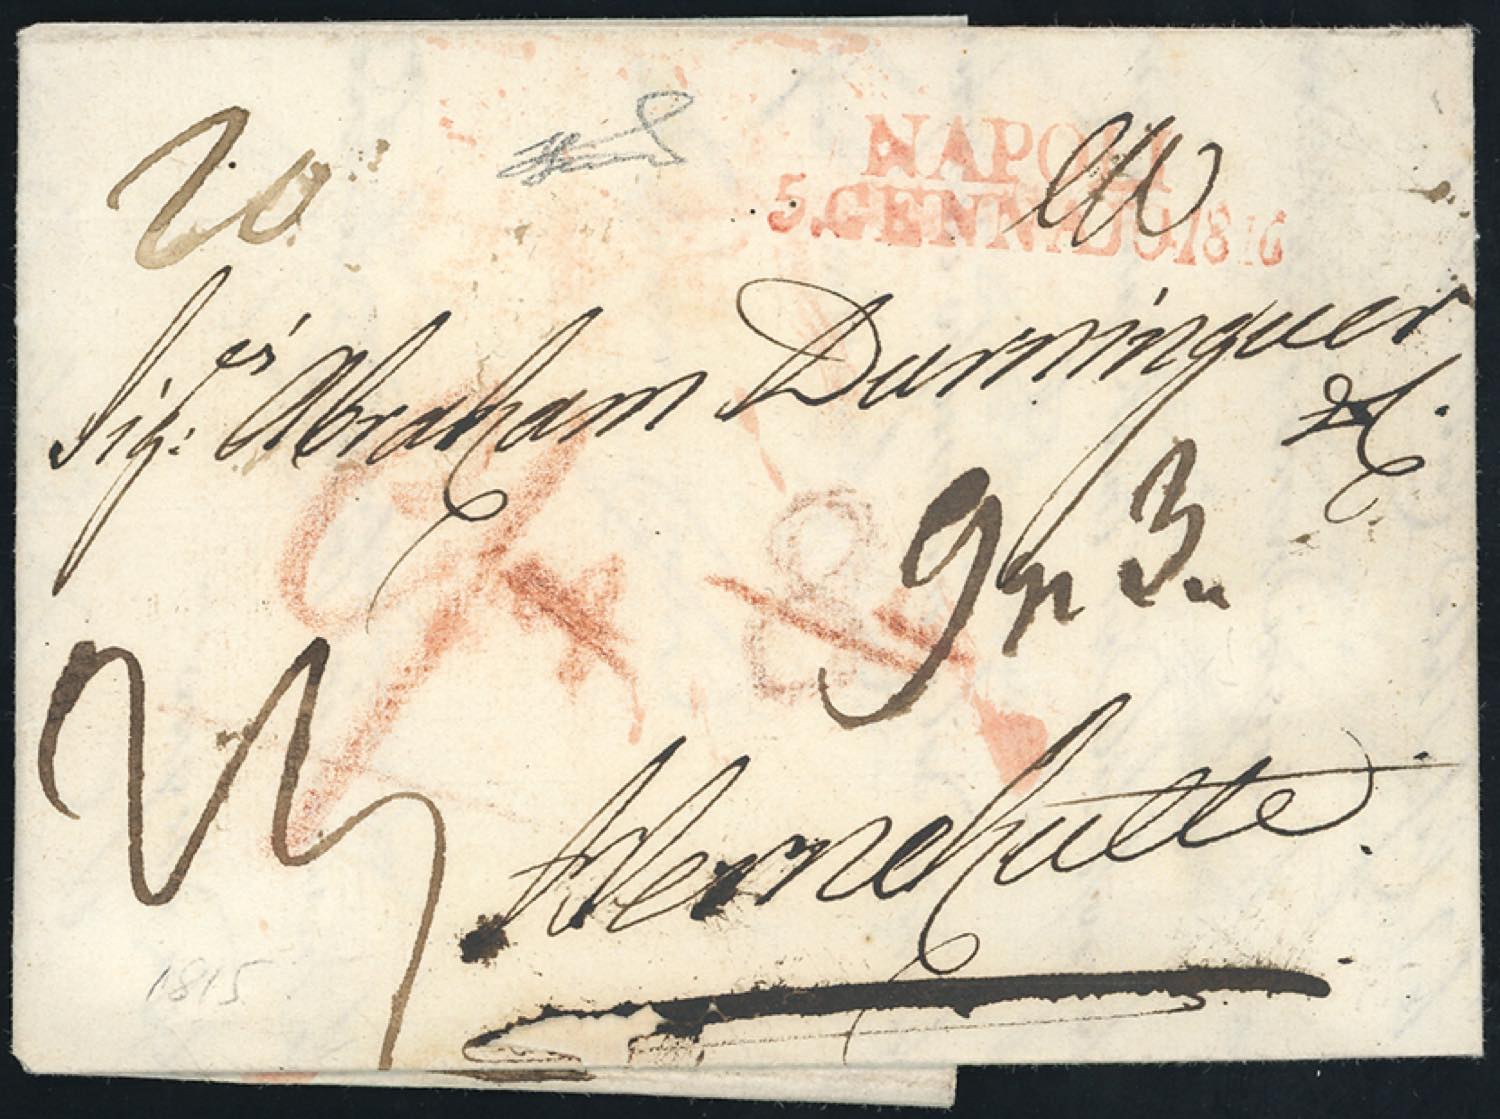 20
NAPOLI
5. GENNAIO. 1816
Sig:es Abraham Durninguer
& C.
9 gr 3
8
Hernehutte.
1815